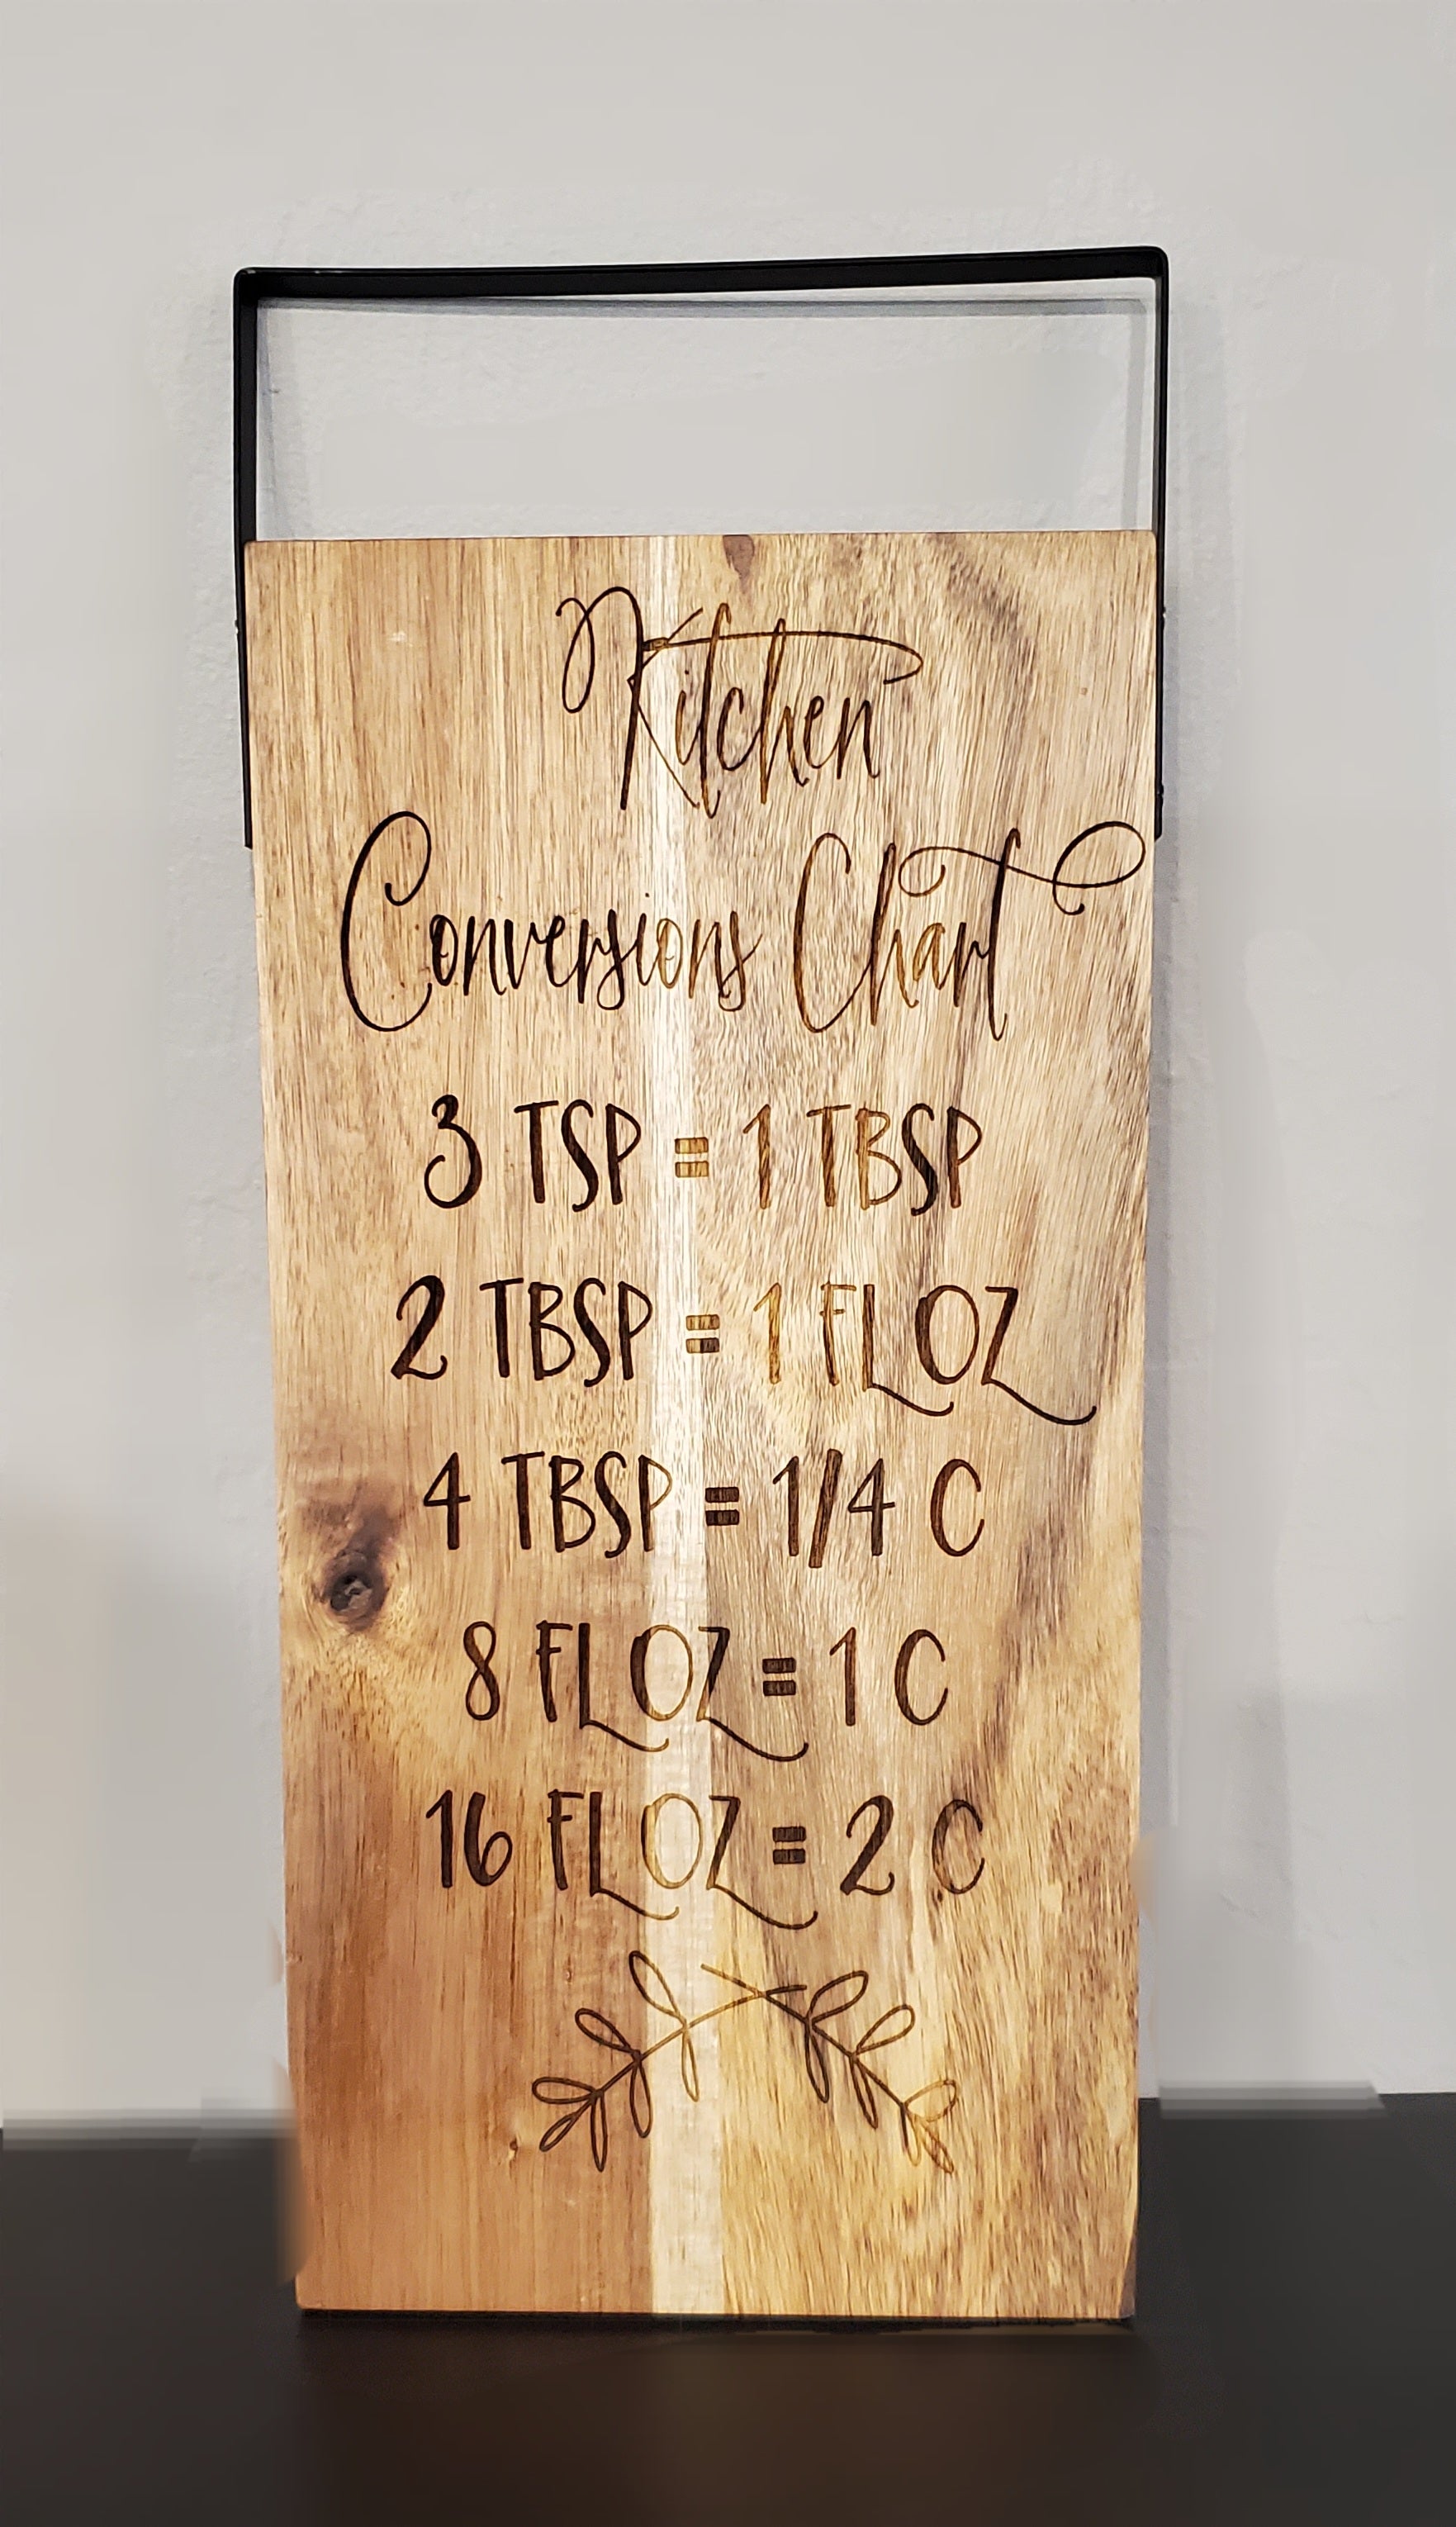 Kitchen
Conversions Chart
3 TSP = 1 TBSP
2 TBSP = 1 FL OZ
4 TBSP = 1/4 C
8 FL OZ = 1 C
16 FL OZ = 2 C